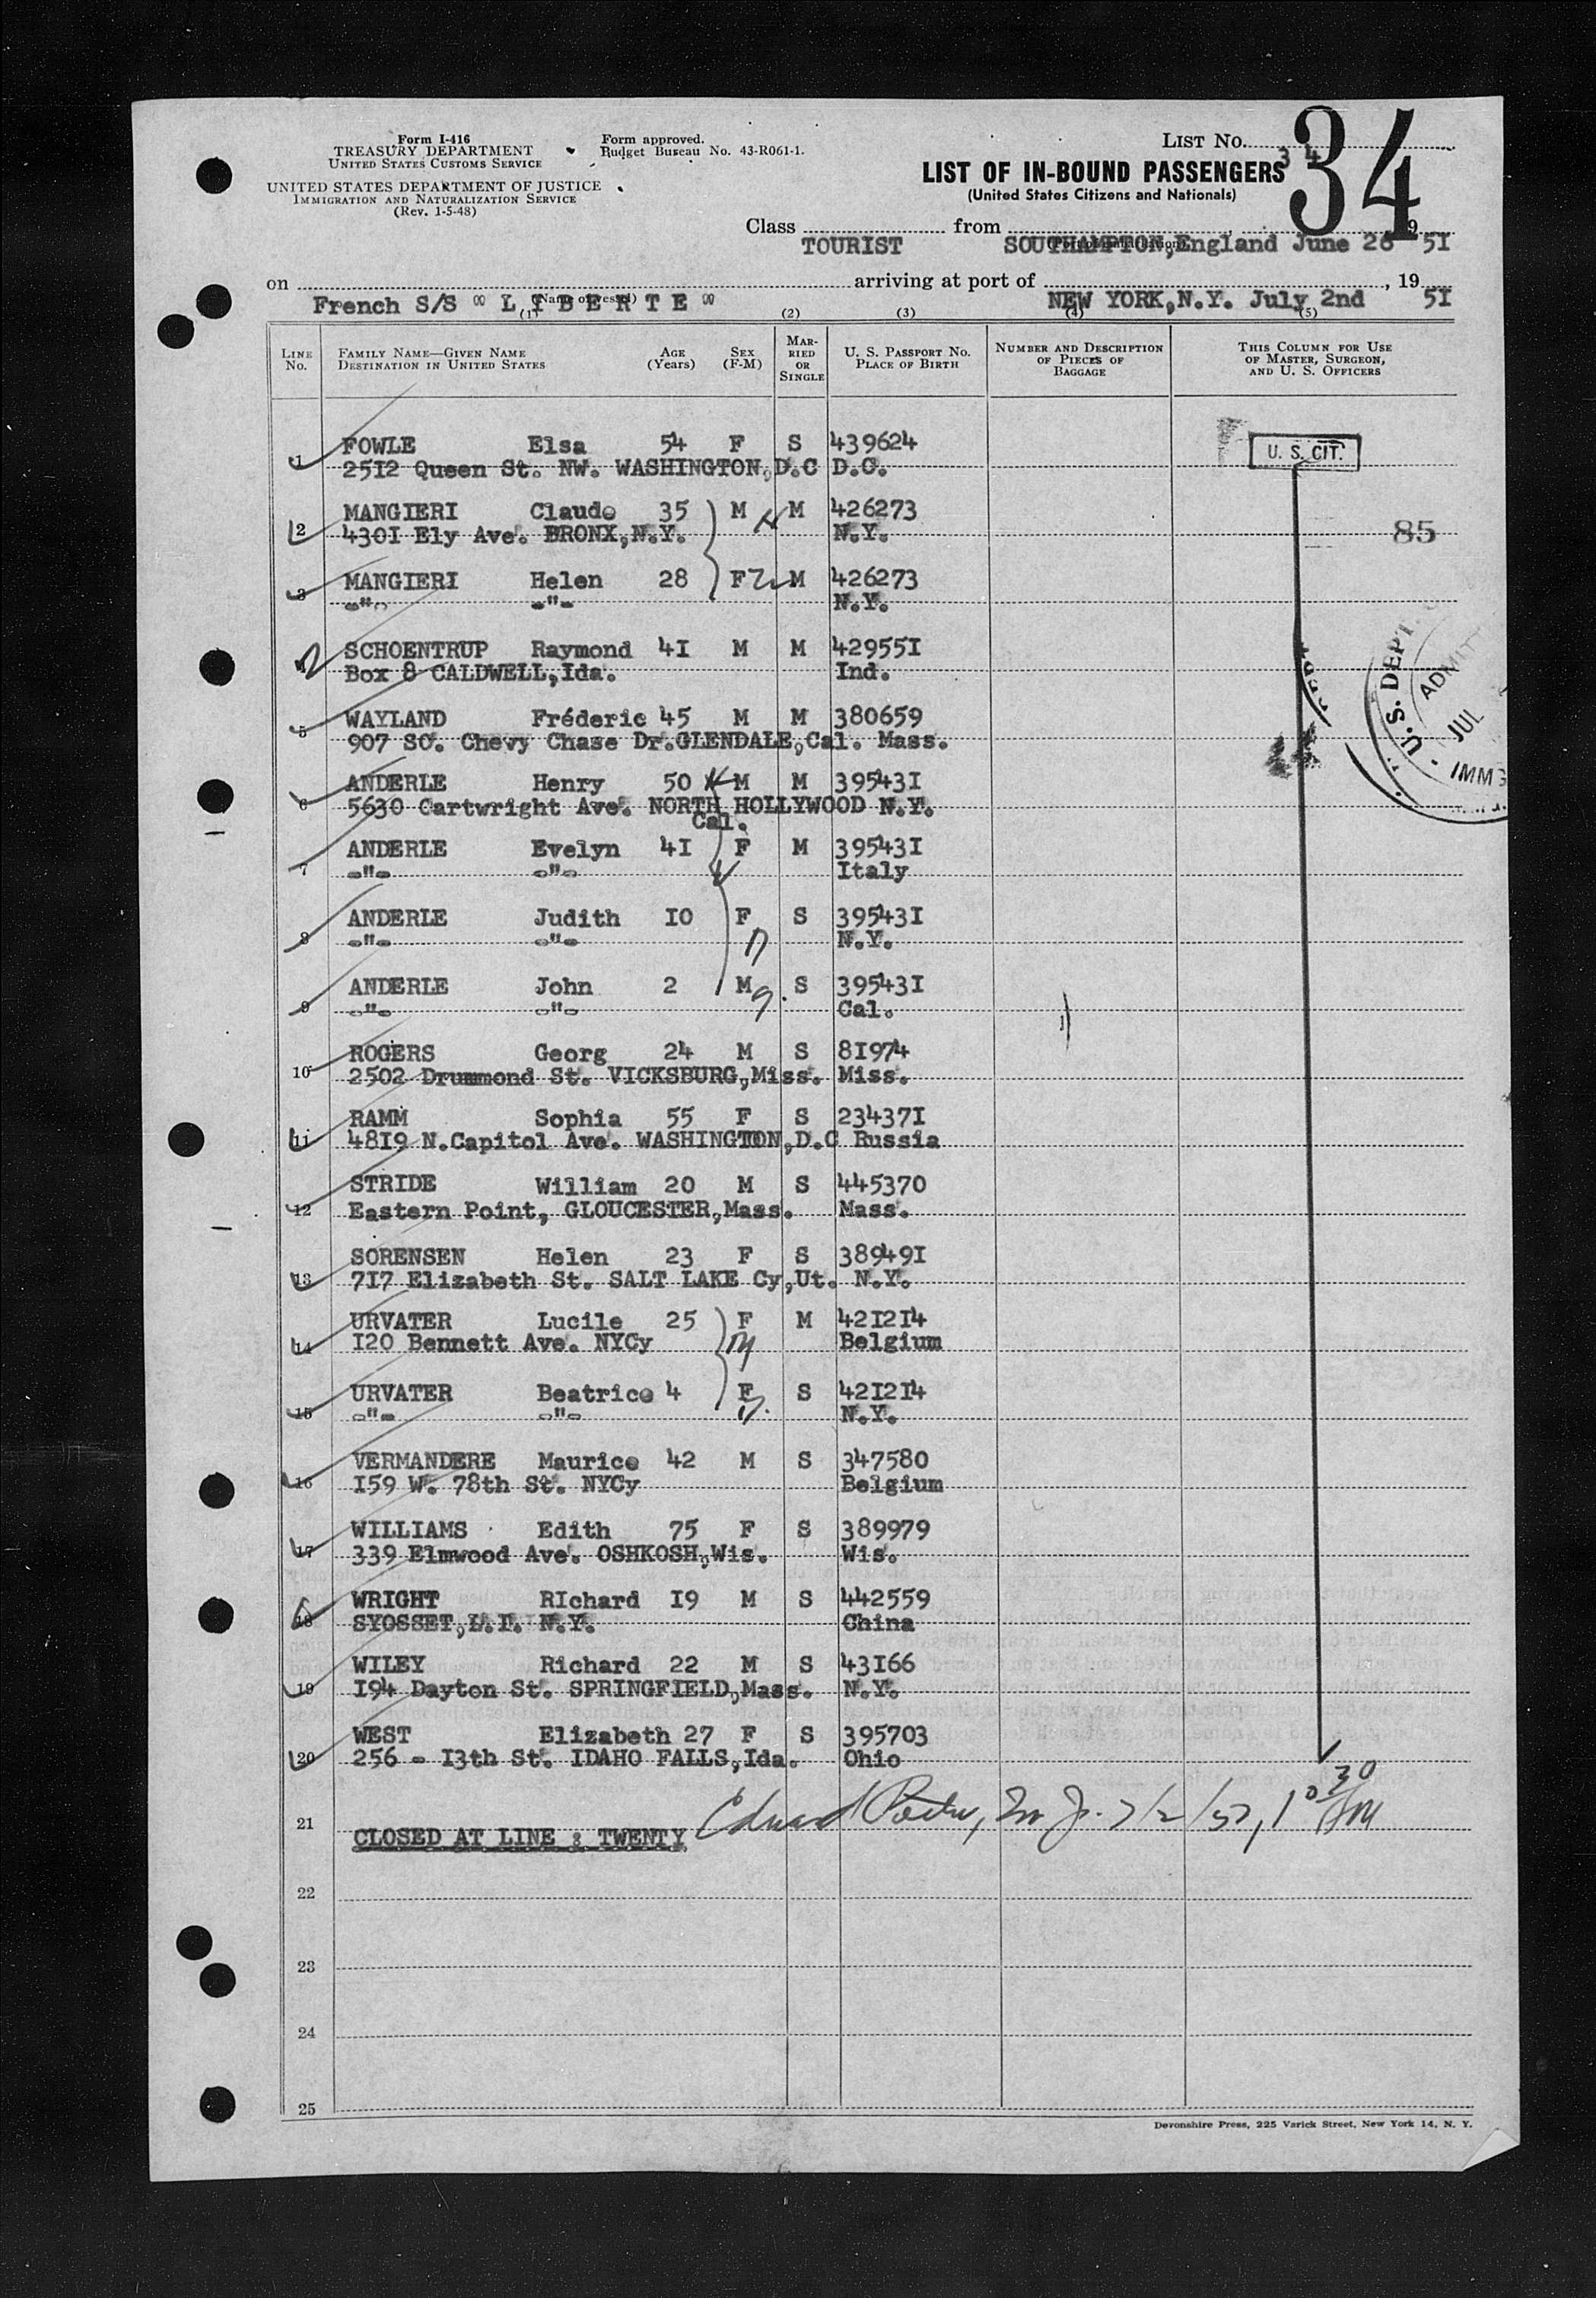 Form I-416
TREASURY DEPARTMENT
UNITED STATES CUSTOMS SERVICE
UNITED STATES DEPARTMENT OF JUSTICE
IMMIGRATION AND NATURALIZATION SERVICE
(Rev. 1-5-48)
Form approved.
Budget Bureau No. 43-R061-1.
LIST No. 34
34
LIST OF IN-BOUND PASSENGERS
(United States Citizens and Nationals)
Class TOURIST from SOUTHAMPTON, England June 26 1951
on French S/S " L I B E R T E " arriving at port of NEW YORK, N.Y. July 2nd, 1951
(Name of vessel)
(1) (2) (3) (4) (5)
LINE No. FAMILY NAME—GIVEN NAME DESTINATION IN UNITED STATES AGE (Years) SEX (F-M) MARRIED OR SINGLE U. S. PASSPORT NO. PLACE OF BIRTH NUMBER AND DESCRIPTION OF PIECES OF BAGGAGE THIS COLUMN FOR USE OF MASTER, SURGEON, AND U. S. OFFICERS
1 FOWLE Elsa 54 F S 439624 U. S. CIT.
2512 Queen St. NW. WASHINGTON, D.C D.C.
2 MANGIERI Claude 35 M M 426273
4301 Ely Ave. BRONX, N.Y. N.Y. 85
3 MANGIERI Helen 28 F M 426273
-"- -"- N.Y.
4 SCHOENTRUP Raymond 4I M M 42955I
Box 8 CALDWELL, Ida. Ind.
5 WAYLAND Fréderic 45 M M 380659
907 SO. Chevy Chase Dr. GLENDALE, Cal. Mass.
6 ANDERLE Henry 50 M M 39543I
5630 Cartwright Ave. NORTH HOLLYWOOD N.Y.
Cal.
7 ANDERLE Evelyn 4I F M 39543I
-"- -"- Italy
8 ANDERLE Judith I0 F S 39543I
-"- -"- N.Y.
9 ANDERLE John 2 M S 39543I
-"- -"- Cal.
10 ROGERS Georg 24 M S 8I974
2502 Drummond St. VICKSBURG, Miss. Miss.
11 RAMM Sophia 55 F S 23437I
48I9 N.Capitol Ave. WASHINGTON, D.C Russia
12 STRIDE William 20 M S 445370
Eastern Point, GLOUCESTER, Mass. Mass.
13 SORENSEN Helen 23 F S 38949I
7I7 Elizabeth St. SALT LAKE Cy, Ut. N.Y.
14 URVATER Lucile 25 F M 42I2I4
I20 Bennett Ave. NYCy Belgium
15 URVATER Beatrice 4 F S 42I2I4
-"- -"- N.Y.
16 VERMANDERE Maurice 42 M S 347580
I59 W. 78th St. NYCy Belgium
17 WILLIAMS Edith 75 F S 389979
339 Elmwood Ave. OSHKOSH, Wis. Wis.
18 WRIGHT RIchard I9 M S 442559
SYOSSET, L.I. N.Y. China
19 WILEY Richard 22 M S 43I66
I94 Dayton St. SPRINGFIELD, Mass. N.Y.
20 WEST Elizabeth 27 F S 395703
256 - I3th St. IDAHO FALLS, Ida. Ohio
21 CLOSED AT LINE : TWENTY
22
23
24
25
U.S. DEPT.
ADMIT
JUL
IMM
Devonshire Press, 225 Varick Street, New York 14, N. Y.